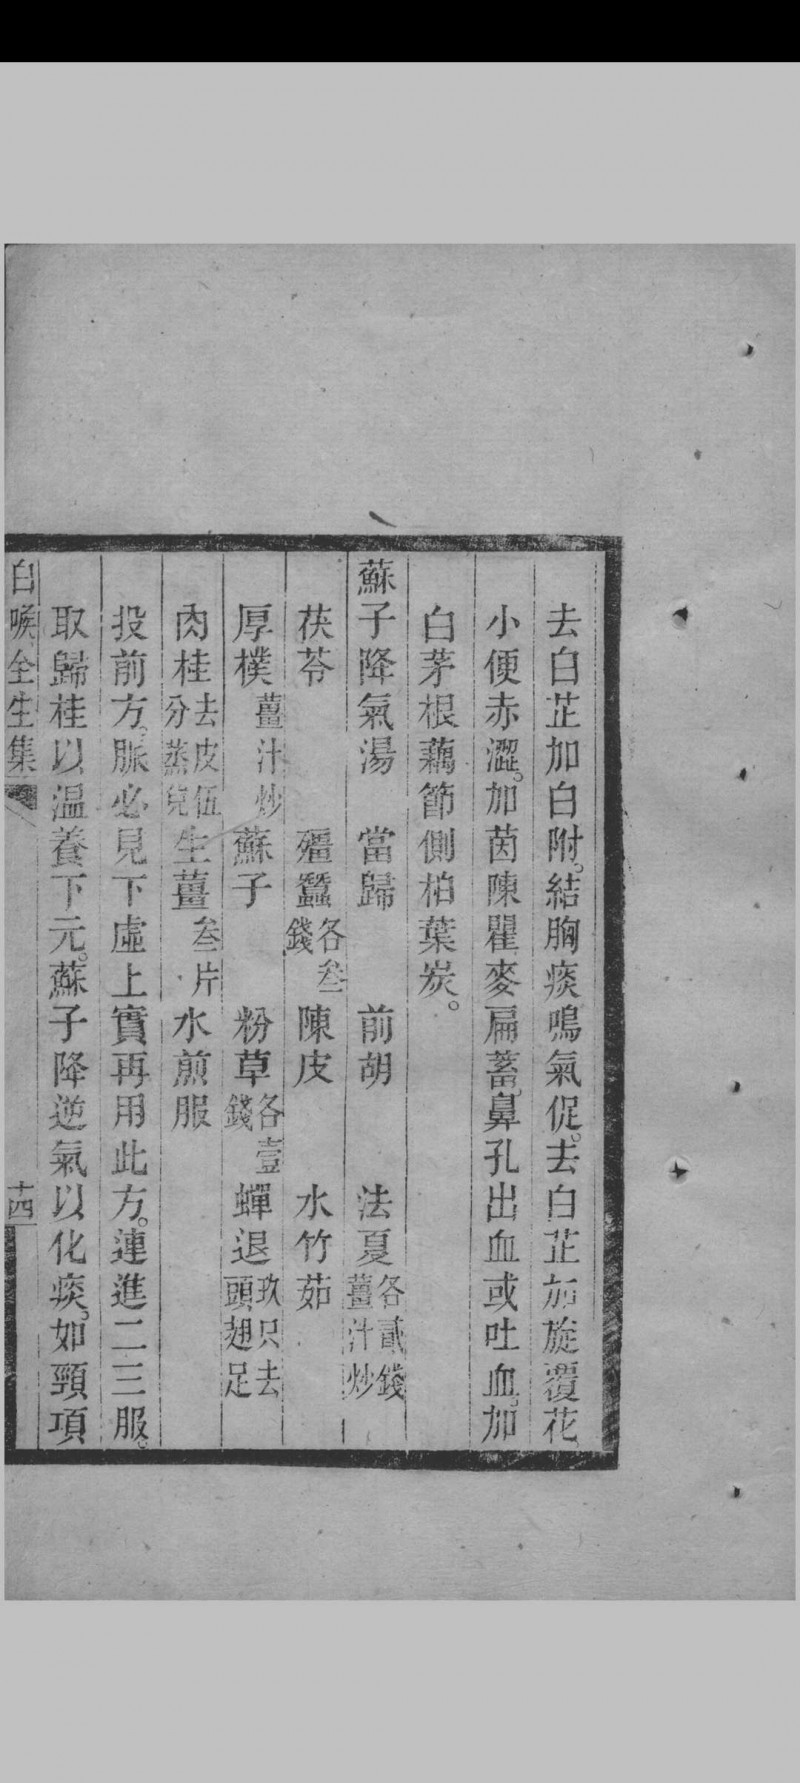 去白芷加白附。結胸痰鳴氣促。去白芷加旋覆花
小便赤澀。加茵陳瞿麥扁蓄。鼻孔出血或吐血。加
白茅根藕節側柏葉炭。
蘇子降氣湯 當歸 前胡 法夏各貳錢薑汁炒
茯苓 殭蠶各叁錢 陳皮 水竹茹
厚樸薑汁炒 蘇子 粉草各壹錢 蟬退玖只去頭翅足
肉桂去皮伍分蒸兌 生薑叁片 水煎服
投前方。脈必見下虛上實再用此方。連進二三服。
取歸桂以温養下元。蘇子降逆氣以化痰。如頸項
白喉全生集 十四